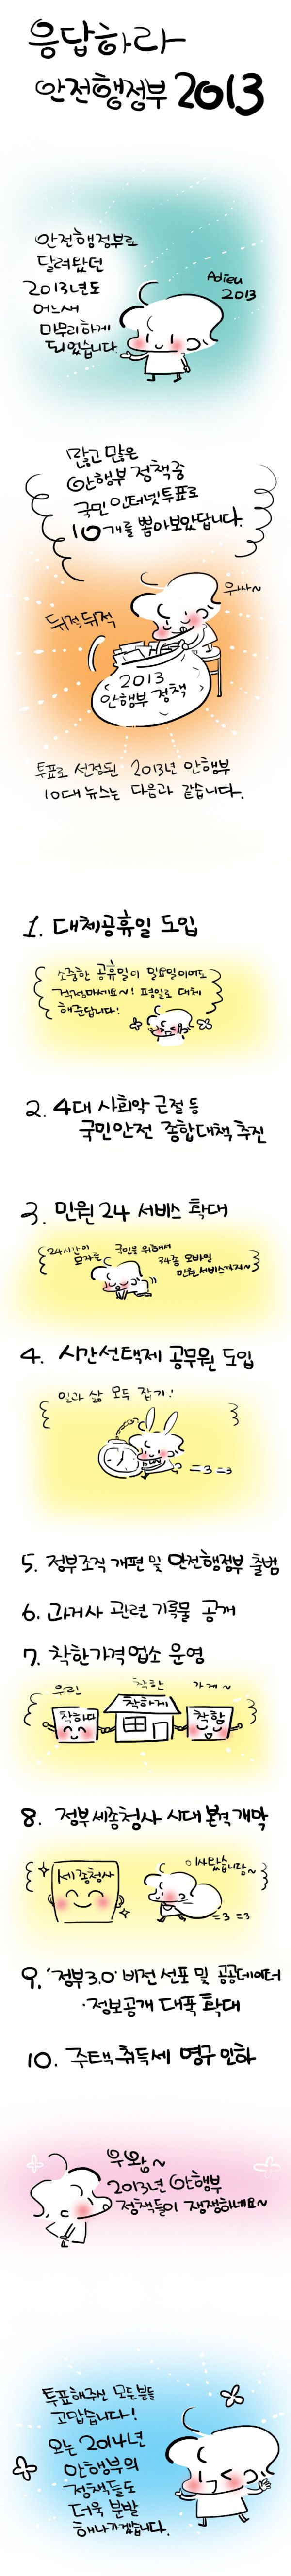 응답하라
안전행정부 2013
안전행정부로
달려왔던
2013년도
어느새
마무리하게
되었습니다.
Adieu
2013
많고 많은
안행부 정책 중
국민 인터넷투표로
10개를 뽑아보았답니다.
우싸~
뒤적뒤적
2013
안행부 정책
투표로 선정된 2013년 안행부
10대 뉴스는 다음과 같습니다.
1. 대체공휴일 도입
소중한 공휴일이 일요일이어도
걱정마세요~! 평일로 대체
해준답니다!
2. 4대 사회악 근절 등
국민안전 종합대책 추진
3. 민원24 서비스 확대
24시간이
모자른
국민을 위해서
34종 모바일
민원서비스까지~
4. 시간선택제 공무원 도입
일과 삶 모두 잡기!
=3 =3
5. 정부조직 개편 및 안전행정부 출범
6. 과거사 관련 기록물 공개
7. 착한가격업소 운영
우린 착한 가게~
착하다 착하게 착함
8. 정부세종청사 시대 본격 개막
세종청사
이사왔습니다~
=3 =3
9. '정부3.0' 비전 선포 및 공공데이터
·정보공개 대폭 확대
10. 주택 취득세 영구 인하
우왕~
2013년 안행부
정책들이 쟁쟁하네요~
투표해주신 모든분들
고맙습니다!
오는 2014년
안행부의
정책들도
더욱 분발
해나가겠습니다.